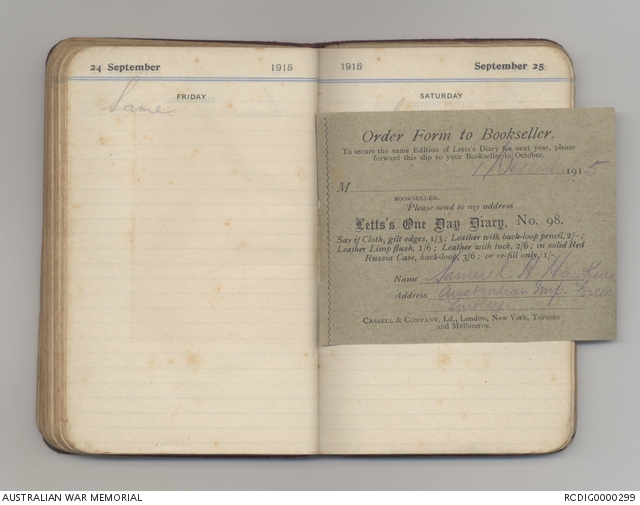 24 September 1915
FRIDAY
Same
1915 September 25
SATURDAY
Order Form to Bookseller.
To secure the same Edition of Letts's Diary for next year, please
forward this slip to your Bookseller in October.
1915
M
BOOKSELLER.
Please send to my address
Letts's One Day Diary, No. 98.
Say if Cloth, gilt edges, 1/3; Leather with back-loop pencil, 2/-;
Leather Limp flush, 1/6; Leather with tuck, 2/6; in solid Red
Russia Case, back-loop, 3/6; or re-fill only, 1/-.
Name Samuel H Hawkins
Address Australian Imp. Force
Turkey.
CASSELL & COMPANY, Ld., London, New York, Toronto
and Melbourne.
AUSTRALIAN WAR MEMORIAL
RCDIG0000299